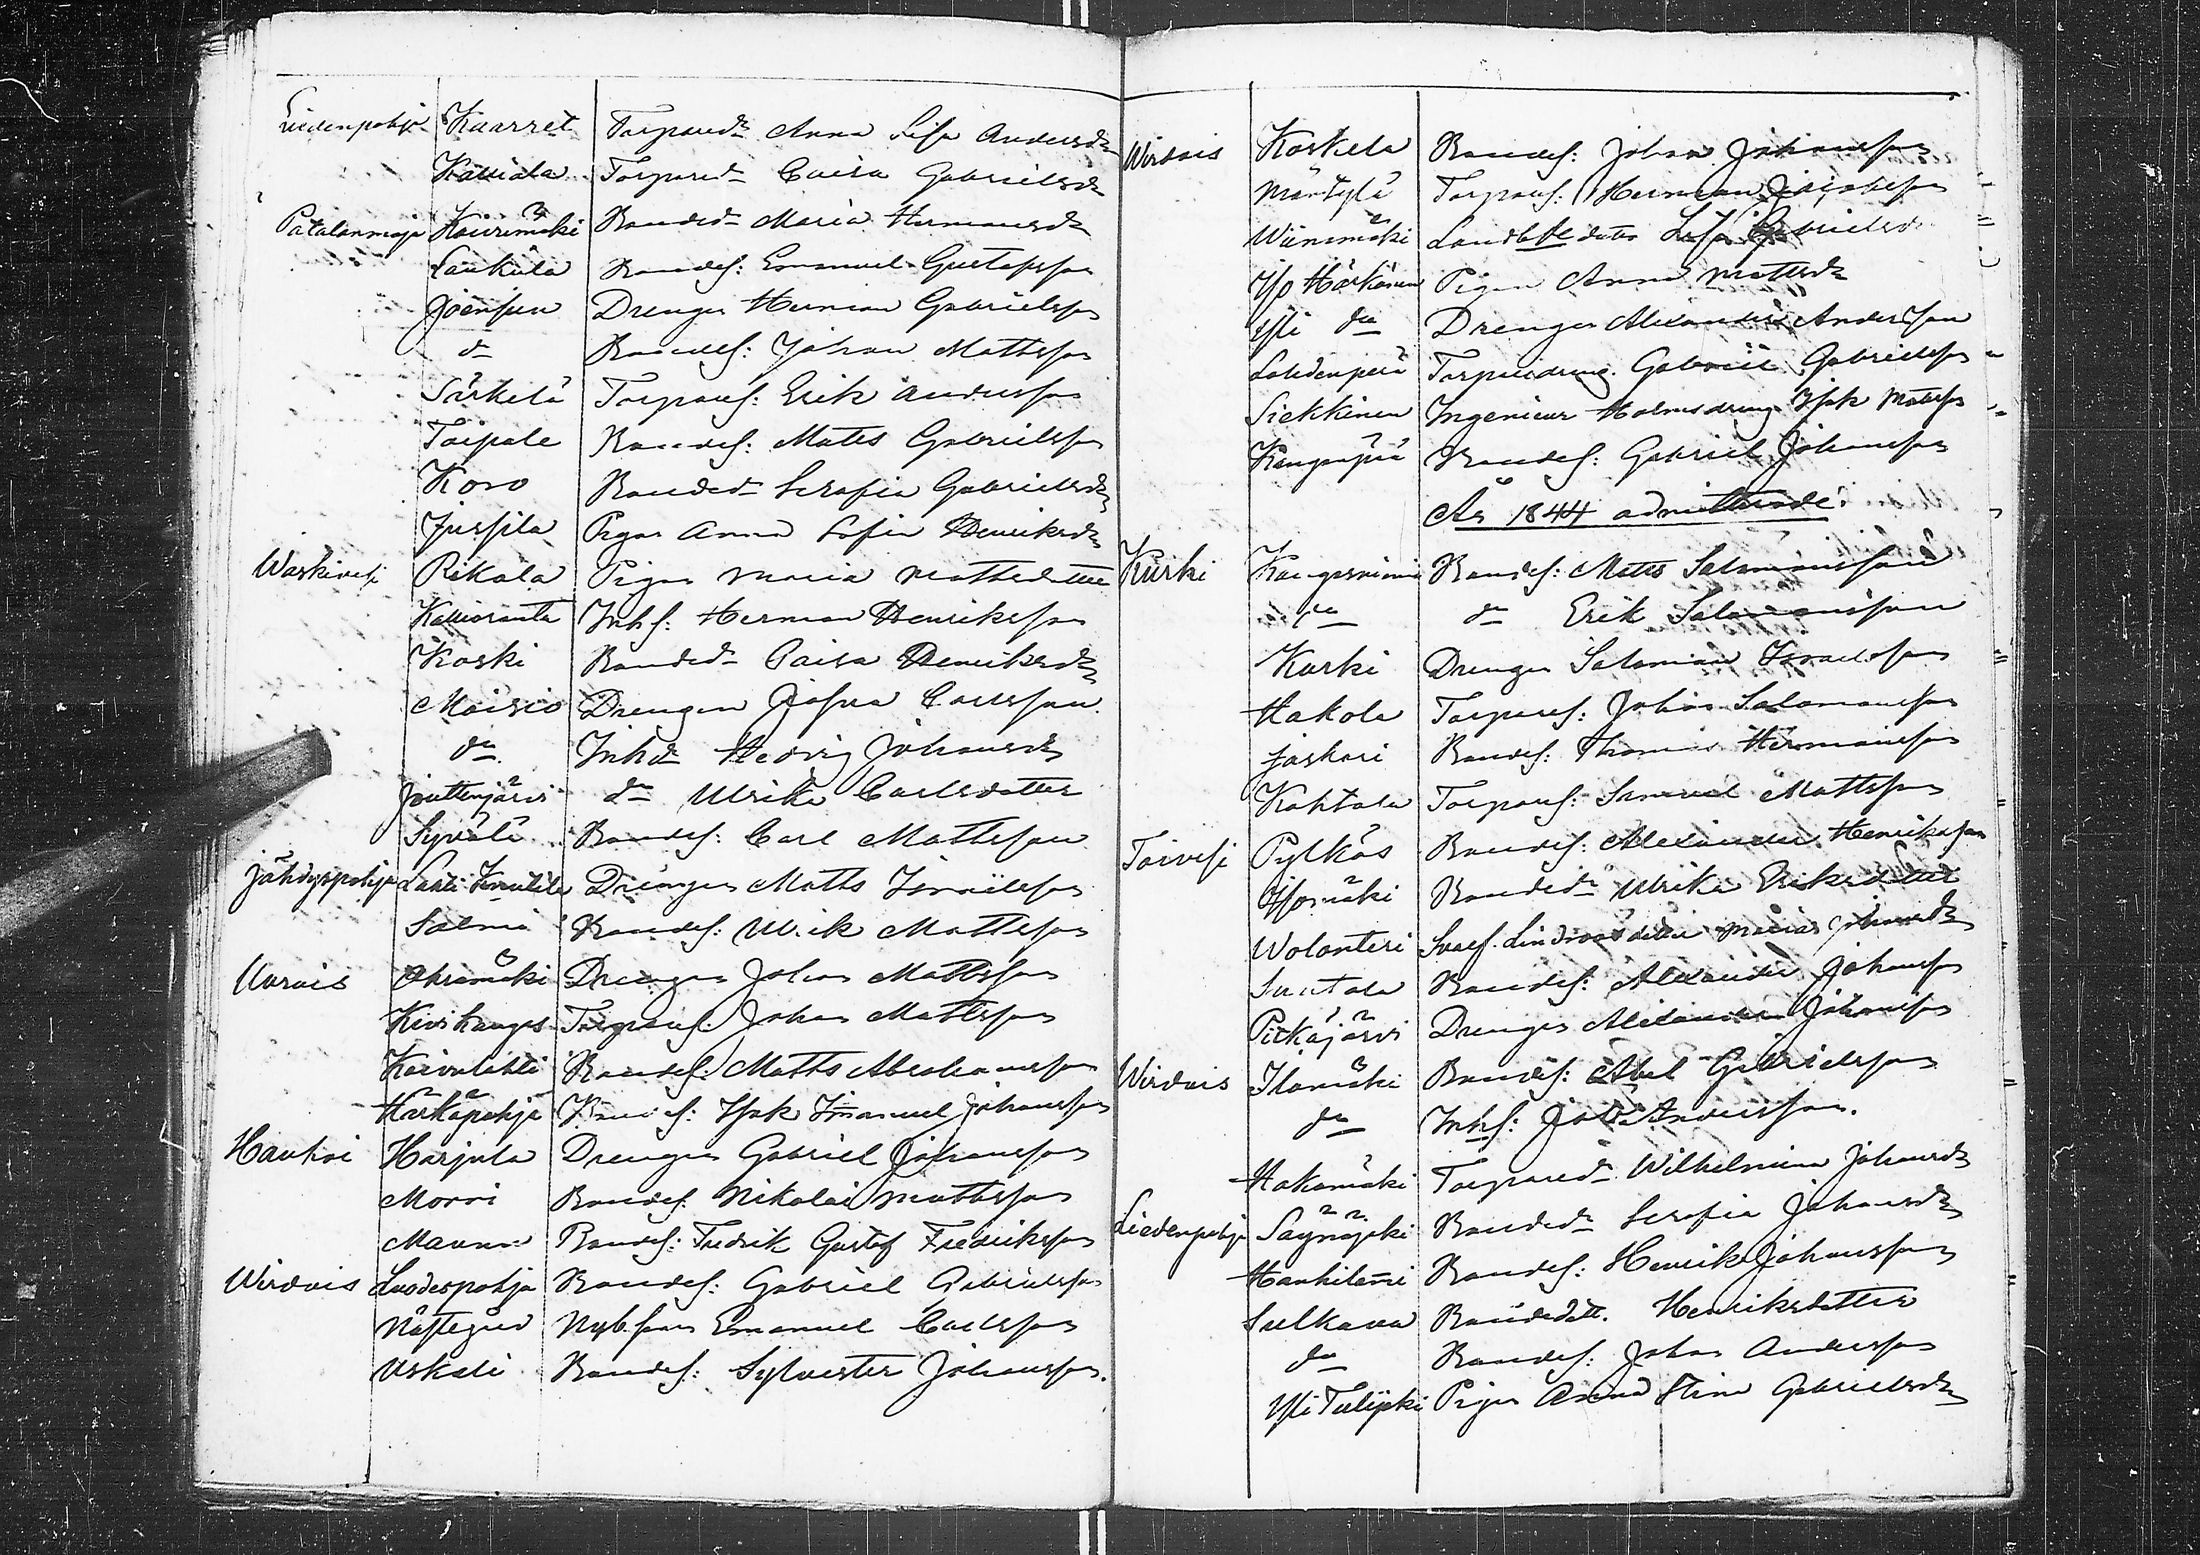 Liedenpohja Kaarret Torpared:r Anna Lisa Andersdr
Kattiala Torpared:r Caisa Gabrielsdr
Patalanmaja Kaurimäki Bonded:r Maria Hermansdr
Laukula Bondes: Emanuel Gustafsson
Joensuu Drengen Herman Gabrielsson
do Bondes: Johan Mattsson
Särkelä Torpares: Erik Andersson
Taipale Bondes: Matts Gabrielsson
Koro Bonded:r Serafia Gabrielsdr
Jussila Pigan Anna Sofia Henriksdr
Waskivesi Rikala Pigan Maria Mattsdotter
Kallioranta Inhs: Herman Henriksson
Koski Bonded:r Caisa Henriksdr
Moisio Drengen Josua Carlsson
do Inhdr Hedvig Johansdr
Jouttenjärvi do Ulrika Carlsdotter
Syvälä Bondes: Carl Mattsson
Jähdyspohja Lahti Knuutila Drengen Matts Israelsson
Salmi Bondes: Ulrik Mattsson
Uurais Ohramäki Drengen Johan Mattsson
Kivikangas Torpares: Johan Mattsson
Koivulahti Bondes: Matts Abrahamsson
Härkäpohja Bondes: Isak Imanuel Johansson
Hauhoi Harjula Drengen Gabriel Johansson
Morri Bondes: Nikolai Mattsson
Maunu Bondes: Fredrik Gustaf Fredriksson
Wirdois Luodespohja Bondes: Gabriel Gabrielsson
Näflegård Nyb.son Emanuel Carlsson
Uskali Bondes: Sylvester Johansson.
Wirdois Koskela Bondes: Johan Johansson
Mäntylä Torpares: Herman Jacobsson
Wiinamäki Landb. dotter Lisa Gabrielsd
Iso Härkönen Pigan Anna Mattsdr
Yli do Drengen Alexander Andersson
Lahdenperä Torparedreng. Gabriel Gabrielsson
Siekkinen Ingenieur Holmsdreng Isak Mattsson
Kangasperä Bondes: Gabriel Johansson
År 1844 admitterade:
Kurki Kangasniemi Bondes: Matts Salomonsson
do do Erik Salomonsson
Kurki Drengen Salomon Israelsson
Hakola Torpares: Johan Salomonsson
Jaskari Bondes: Thomas Hermansson
Kohtala Torpares: Samuel Mattsson
Toivesi Pylkäs Bondes: Alexander Henriksson
Isomäki Bonded:r Ulrika Eriksdotter
Wolanteri Svaf. Lindroos dotter Maria Johansdr
Suutala Bondes: Alexander Johansson
Pitkäjärvi Drengen Alexander Johansson
Wirdois Ilomäki Bondes: Abel Gabrielsson
do Inhs: Joh. Andersson.
Hakamäki Torpared:r Wilhelmina Johansdr
Liedenpohja Säynäjoki Bonded:r Serafia Johansdr
Hankilami Bondes: Henrik Johansson
Sulkava Bondedott. Henriksdotter
do Bondes: Johan Andersson
Yli Tulijoki Pigan Anna Stina Gabrielsdr